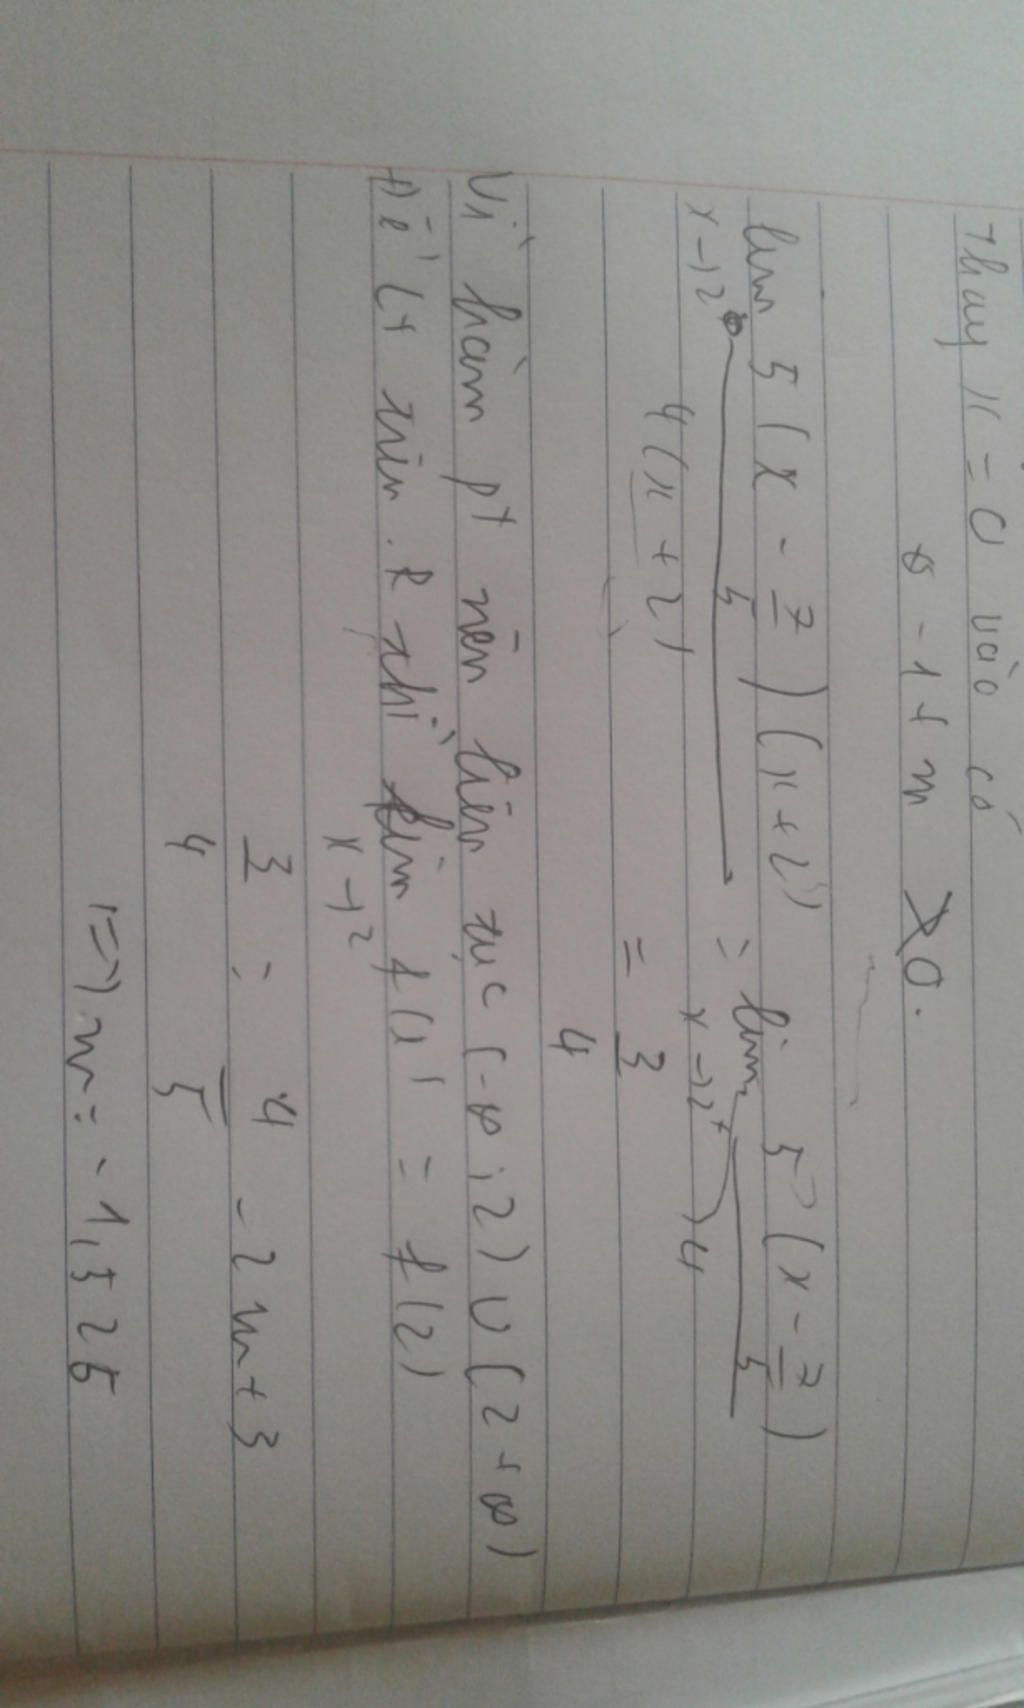 Thay x = 0 vào có
0 - 1 + m > 0.
lim 5 (x - 7/5) (x + 2) / 4(x + 2) = lim 5 (x - 7/5) / 4
x→2 x→2⁺
= 3/4
Vì hàm pt nên liên tục (-∞; 2) ∪ (2 + ∞)
Để Lt trên R thì lim f(x) = f(2)
x→2
3/4 = 4/5 - 2m + 3
=> m = -1,525